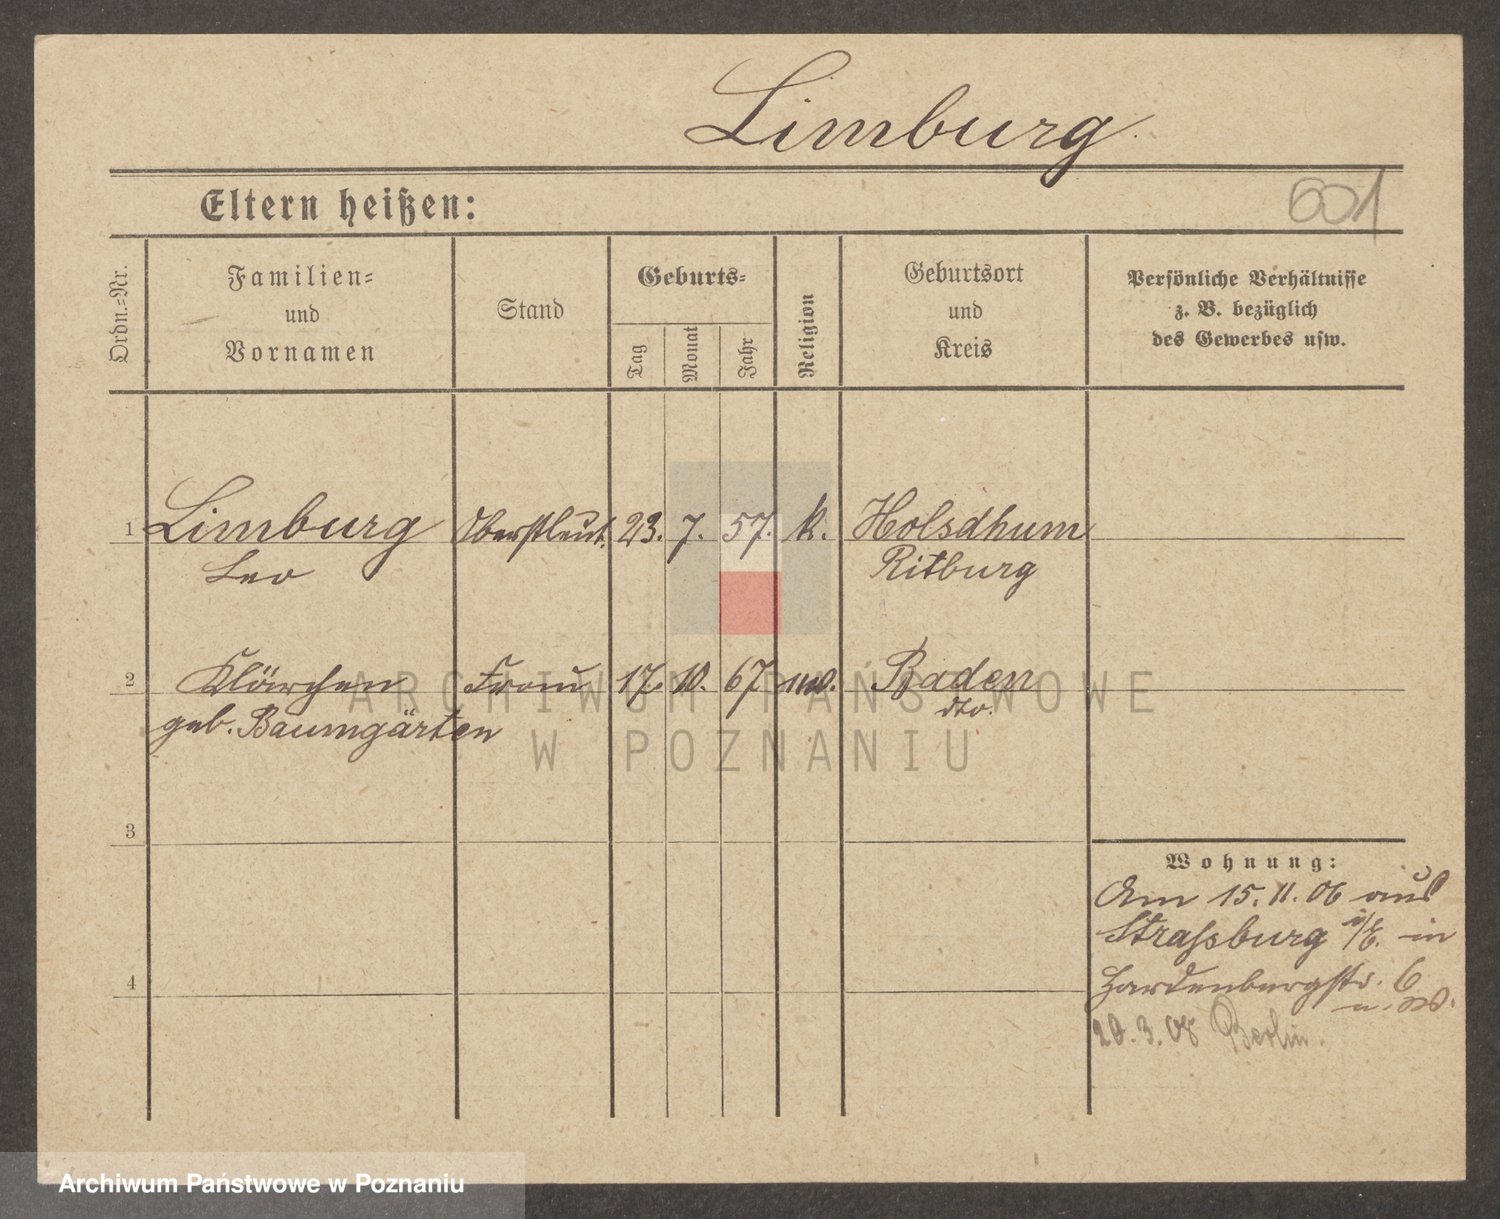 Limburg.
Eltern heißen:
601
Ordn.-Nr.
Familien-
und
Vornamen
Stand
Geburts-
Tag
Monat
Jahr
Religion
Geburtsort
und
Kreis
Persönliche Verhältnisse
z. B. bezüglich
des Gewerbes usw.
1 Limburg Oberstleut. 23. 7. 57. k. Holsdhum
Leo Ritburg
2 Klärchen Frau 17. 10. 67 Baden
geb. Baumgärten dto.
3
4
Wohnung:
Am 15. 11. 06 aus
Straßburg i/E. in
Hardenbergstr. 6
29. 3. 08 Berlin.
ARCHIWUM PAŃSTWOWE
W POZNANIU
Archiwum Państwowe w Poznaniu